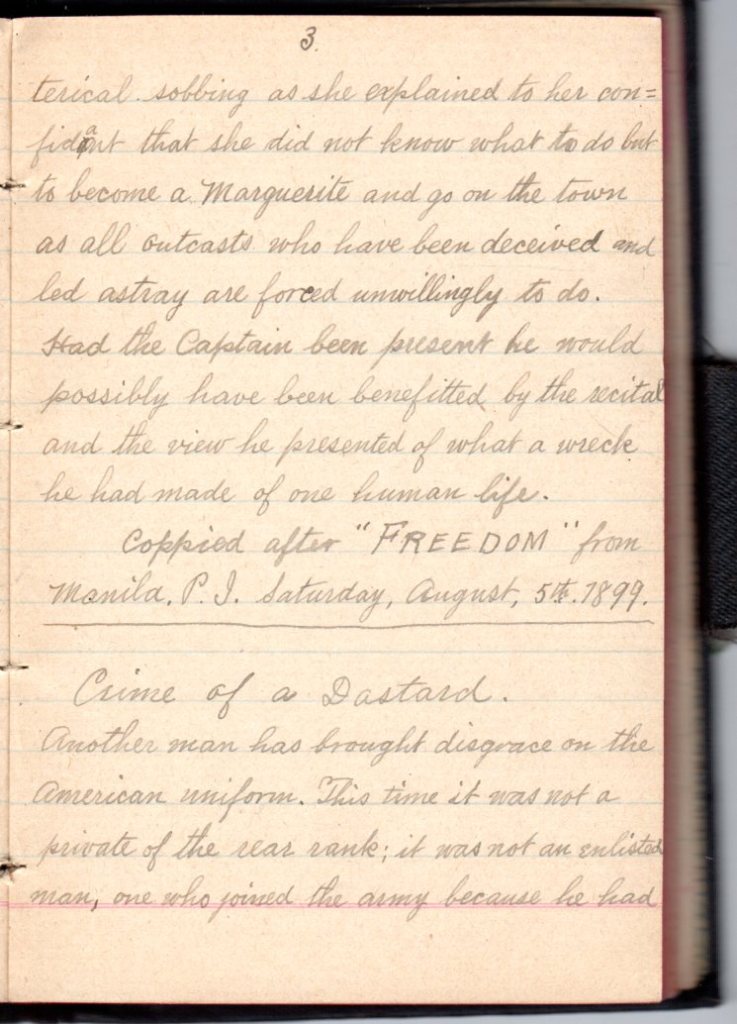 3.
terical sobbing as she explained to her con=
fidant that she did not know what to do but
to become a Marguerite and go on the town
as all outcasts who have been deceived and
led astray are forced unwillingly to do.
Had the Captain been present he would
possibly have been benefitted by the recital
and the view he presented of what a wreck
he had made of one human life.
Coppied after "FREEDOM" from
Manila, P. I. Saturday, August, 5th. 1899.
Crime of a Dastard.
Another man has brought disgrace on the
American uniform. This time it was not a
private of the rear rank; it was not an enlisted
man, one who joined the army because he had